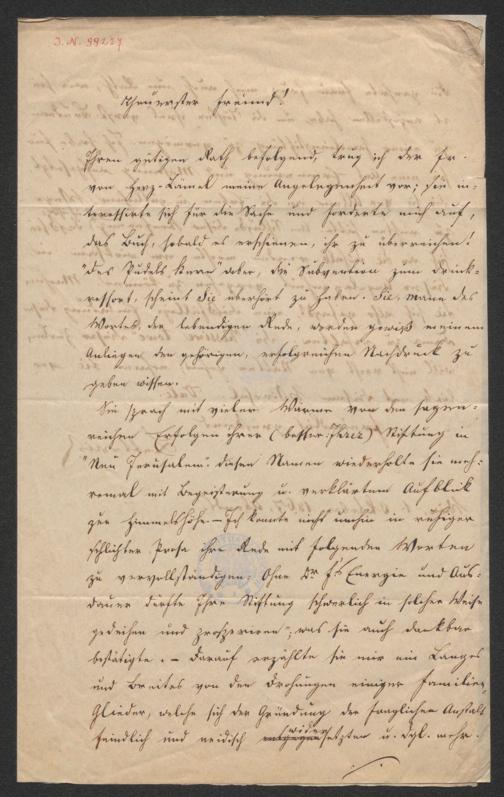 J. N. 99227
Theuerster Freund!
Ihren gütigen Rath befolgend, trug ich der Fr.
von Herz-Lämel meine Angelegenheit vor; sie in-
teressirte sich für die Sache und forderte mich auf,
das Buch, sobald es erschienen, ihr zu überreichen!
"Des Pudels Kern" aber, die Subvention zum Druck-
ressort, scheint sie überhört zu haben. Sie, Mann des
Wortes, der lebendigen Rede, werden gewiß meinem
Anliegen den gehörigen, erfolgreichen Nachdruck zu
geben wissen.
Sie sprach mit vieler Wärme von den segen-
reichen Erfolgen ihrer (besser: Ihrer) Stiftung in
"Neu Jerusalem"; diesen Namen wiederholte sie meh-
remal mit Begeisterung u. verklärtem Aufblick
zur Himmelshöhe. — Ich konnte nicht umhin in ruhiger
schlichter Prosa ihre Rede mit folgenden Worten
zu vervollständigen: Ohne Dr. F's Energie und Aus-
dauer dürfte Ihre Stiftung schwerlich in solcher Weise
gedeihen und prosperiren", was sie auch dankbar
bestätigte. — Darauf erzählte sie mir ein Langes
und Breites von den Drohungen einiger Familien-
Glieder, welche sich der Gründung der fraglichen Anstalt
feindlich und neidisch widersetzten u. dgl. mehr.